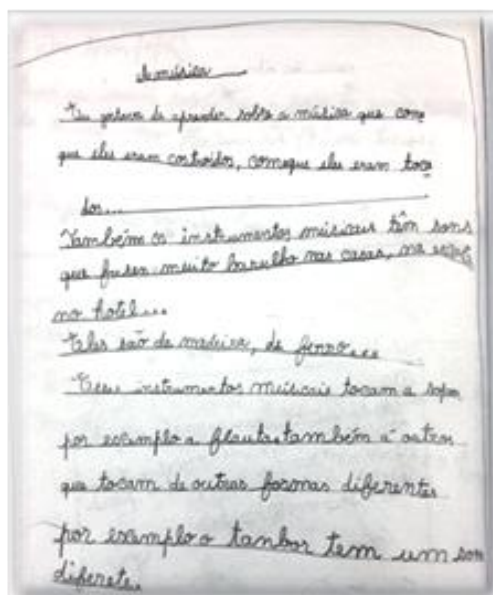 A música
Eu gostava de aprender sobre a música que como
que eles eram costroidos, comoque eles eram toca
dos...
Também os instrumentos músicais têm sons
que fasen muito barulho nas casas, na
no hotel...
Eles são de madeira, de ferro...
instrumentos músicais tocam a sopro
por exemplo a flauta, também á outros
que tocam de outras formas diferentes
por exemplo o tanbor tem um som
diferete.